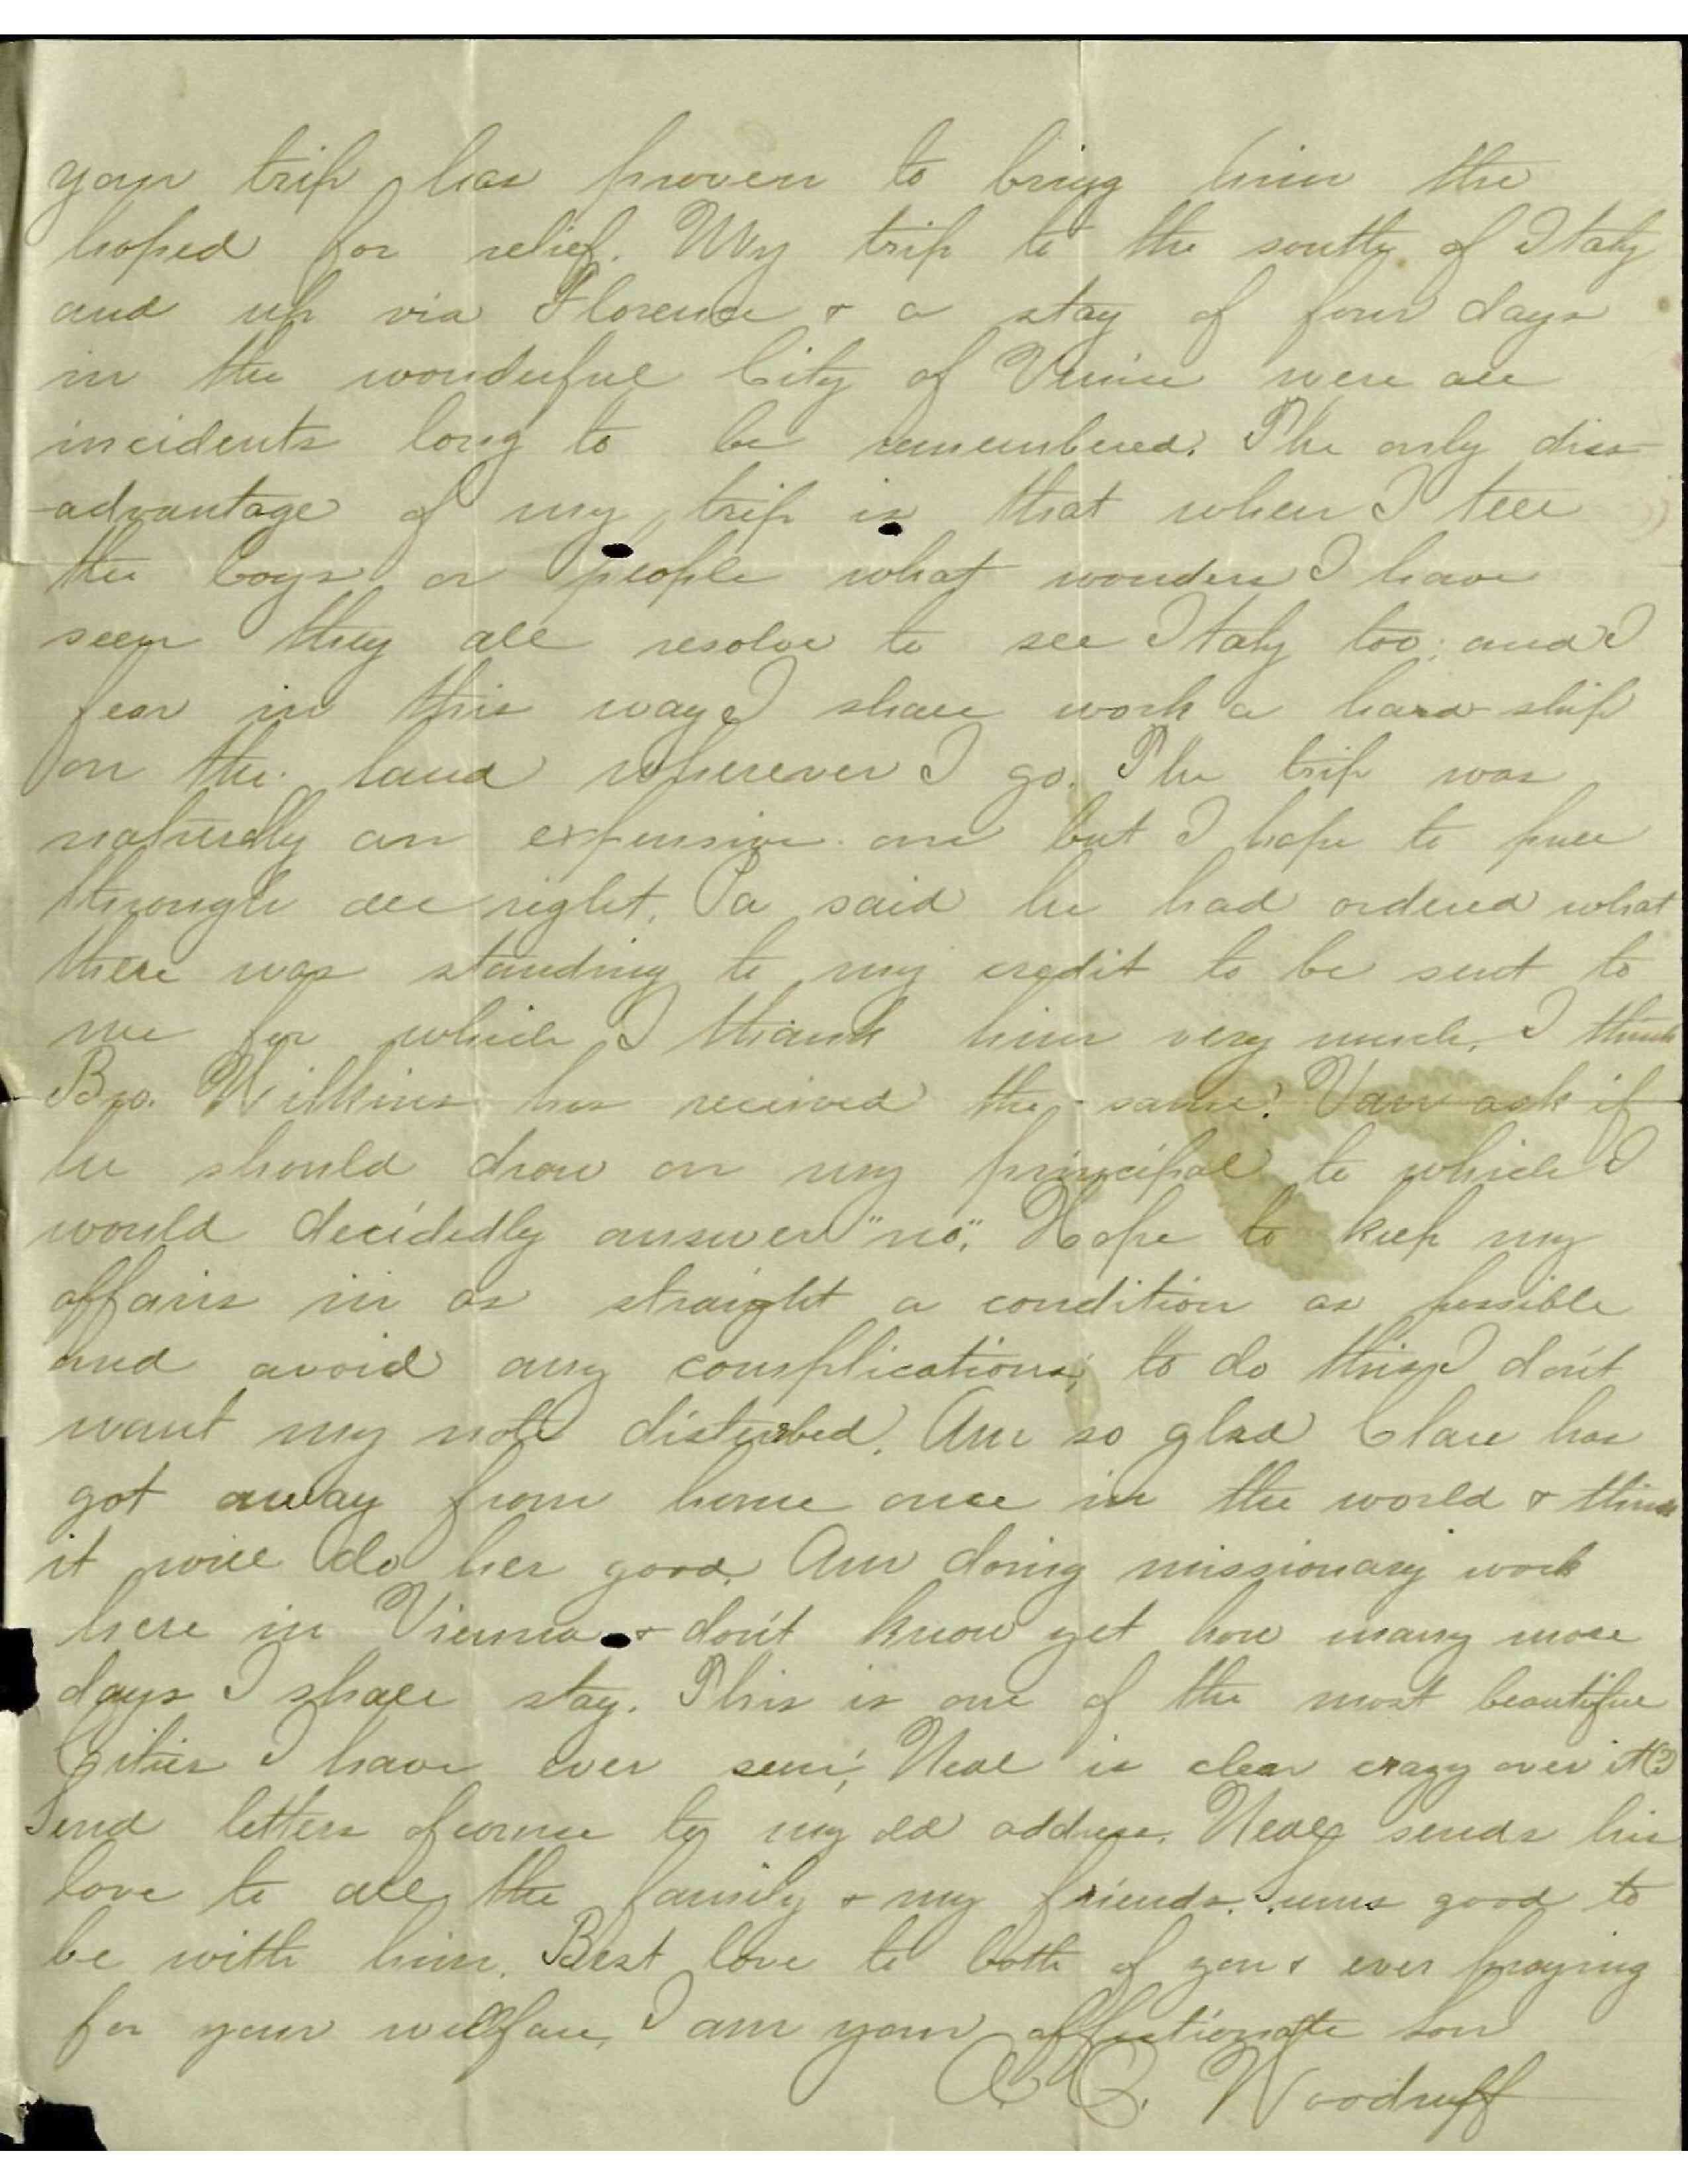 your trip has proven to bring him the
hoped for relief. My trip to the south of Italy
and up via Florence & a stay of four days
in the wonderful City of Venice were all
incidents long to be remembered. The only diss-
-advantage of my trip is that when I tell
the boys or people what wonders I have
seen they all resolve to see Italy too; and I
fear in this way I shall work a hard-ship
on the land wherever I go. The trip was
naturally an expensive one but I hope to pull
through all right. Pa said he had ordered what
there was standing to my credit to be sent to
me for which I thank him very much. I think
Bro. Wilkins has received the same. You ask if
he should draw on my principal to which I
would decidedly answer "no". Hope to keep my
affairs in as straight a condition as possible
and avoid any complications; to do this I don't
want my note disturbed. Am so glad Clare has
got away from home once in the world & think
it will do her good. Am doing missionary work
here in Vienna & don't know yet how many more
days I shall stay. This is one of the most beautiful
Cities I have ever seen; Neal is clear crazy over it(?)
Send letters of course to my old address. Neal sends his
love to all the family & my friends. Seems good to
be with him. Best love to both of you & ever praying
for your wellfare, I am your affectionate son
A. O. Woodruff